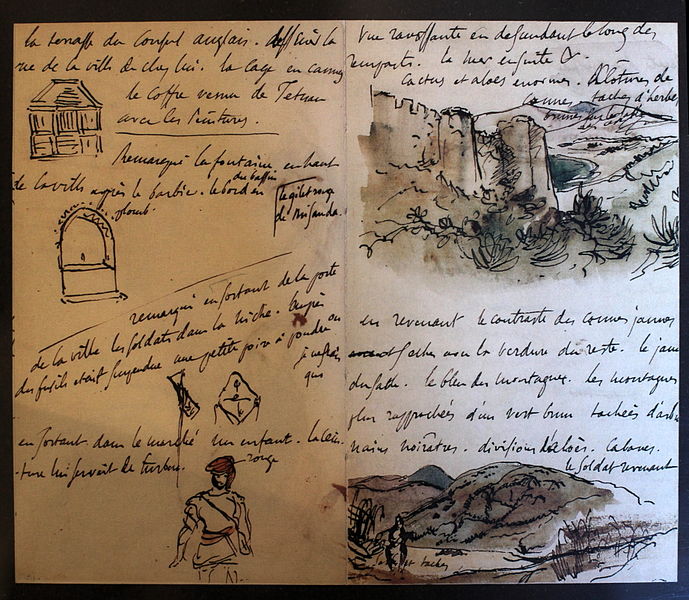 la terrasse du Consul anglais. sur la
rue de la ville de chez lui. la cage en cannes
le coffre venu de Tetuan
avec les peintures.
Remarqué la fontaine en haut
de la ville après le barbier. le bord du bassin en
plomb.
le gilet rouge
de
remarqué en sortant de la porte
de la ville les soldats dans la niche. auprès
des fusils était suspendue une petite poire à poudre ou
je ne sais
quoi
en sortant dans le marché un enfant. la cein
ture lui servait de turban.
rouge
Vue ravissante en descendant le long des
remparts. la mer ensuite &
cactus et aloès énormes. clôture de
cannes taches d'herbes
brunes sur le sable
en revenant le contraste des cannes jaunes
sèches avec la verdure du reste. le jaune
du sable. le bleu des montagnes. les montagnes
plus rapprochées d'un vert brun tachées d'arbustes
nains noirâtres. divisions d'aloès. Cabanes.
le soldat revenant
taches